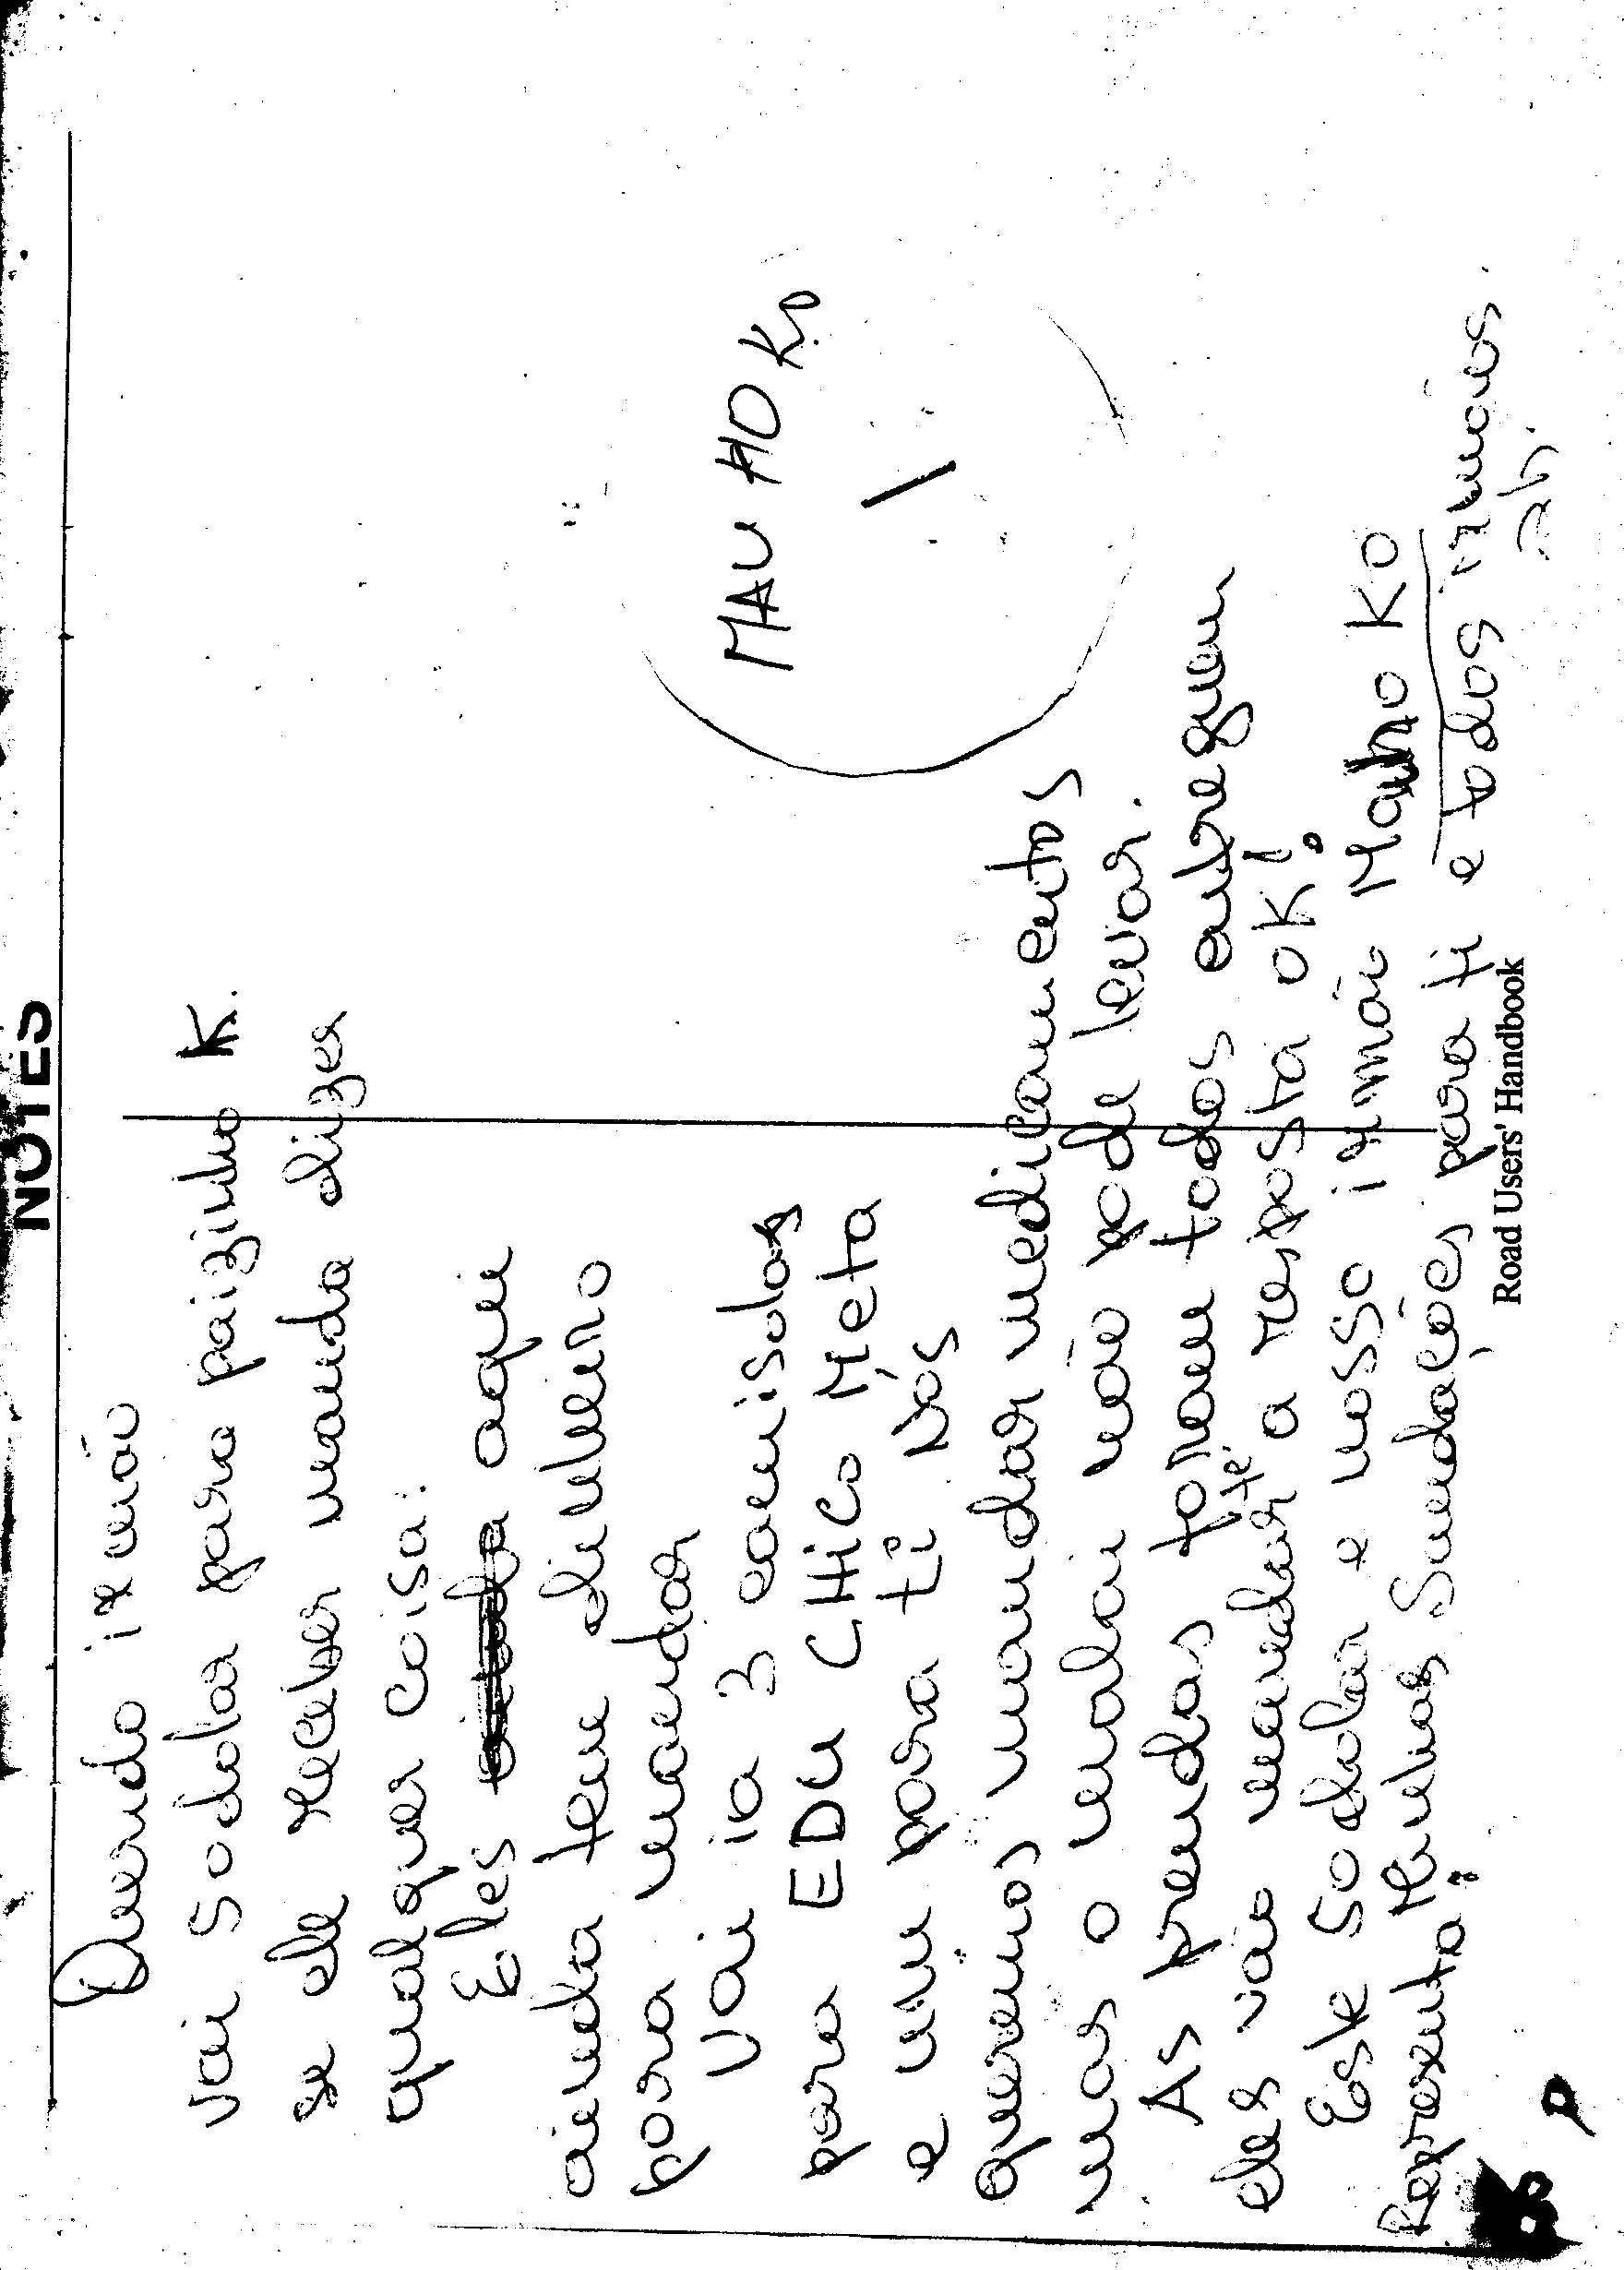 NOTES
Querido irmão
Vai sodolar para paizinho K.
se ele receber manda dizer
qualquer coisa.
Eles aqui
ainda tem dinheiro
para mandar
Vai ia 3 camisolas
para EDU CHICO Meta
e um para ti Nós
queremos mandar medicamentos
mas o malai não pode levar.
As prendas tonau todos entreguem
eles vão mandar-te a resposta OK!
Este sodolar e nosso irmão Mauho KO
Representa! Minhas Saudações para ti e todos irmãos.
ah.
MAU HO KO
Road Users' Handbook